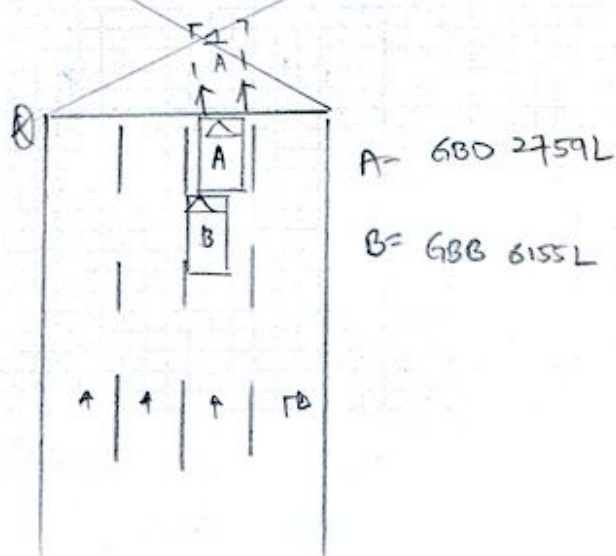 A
A
A= GBD 2759L
B
B= GBB 6155L